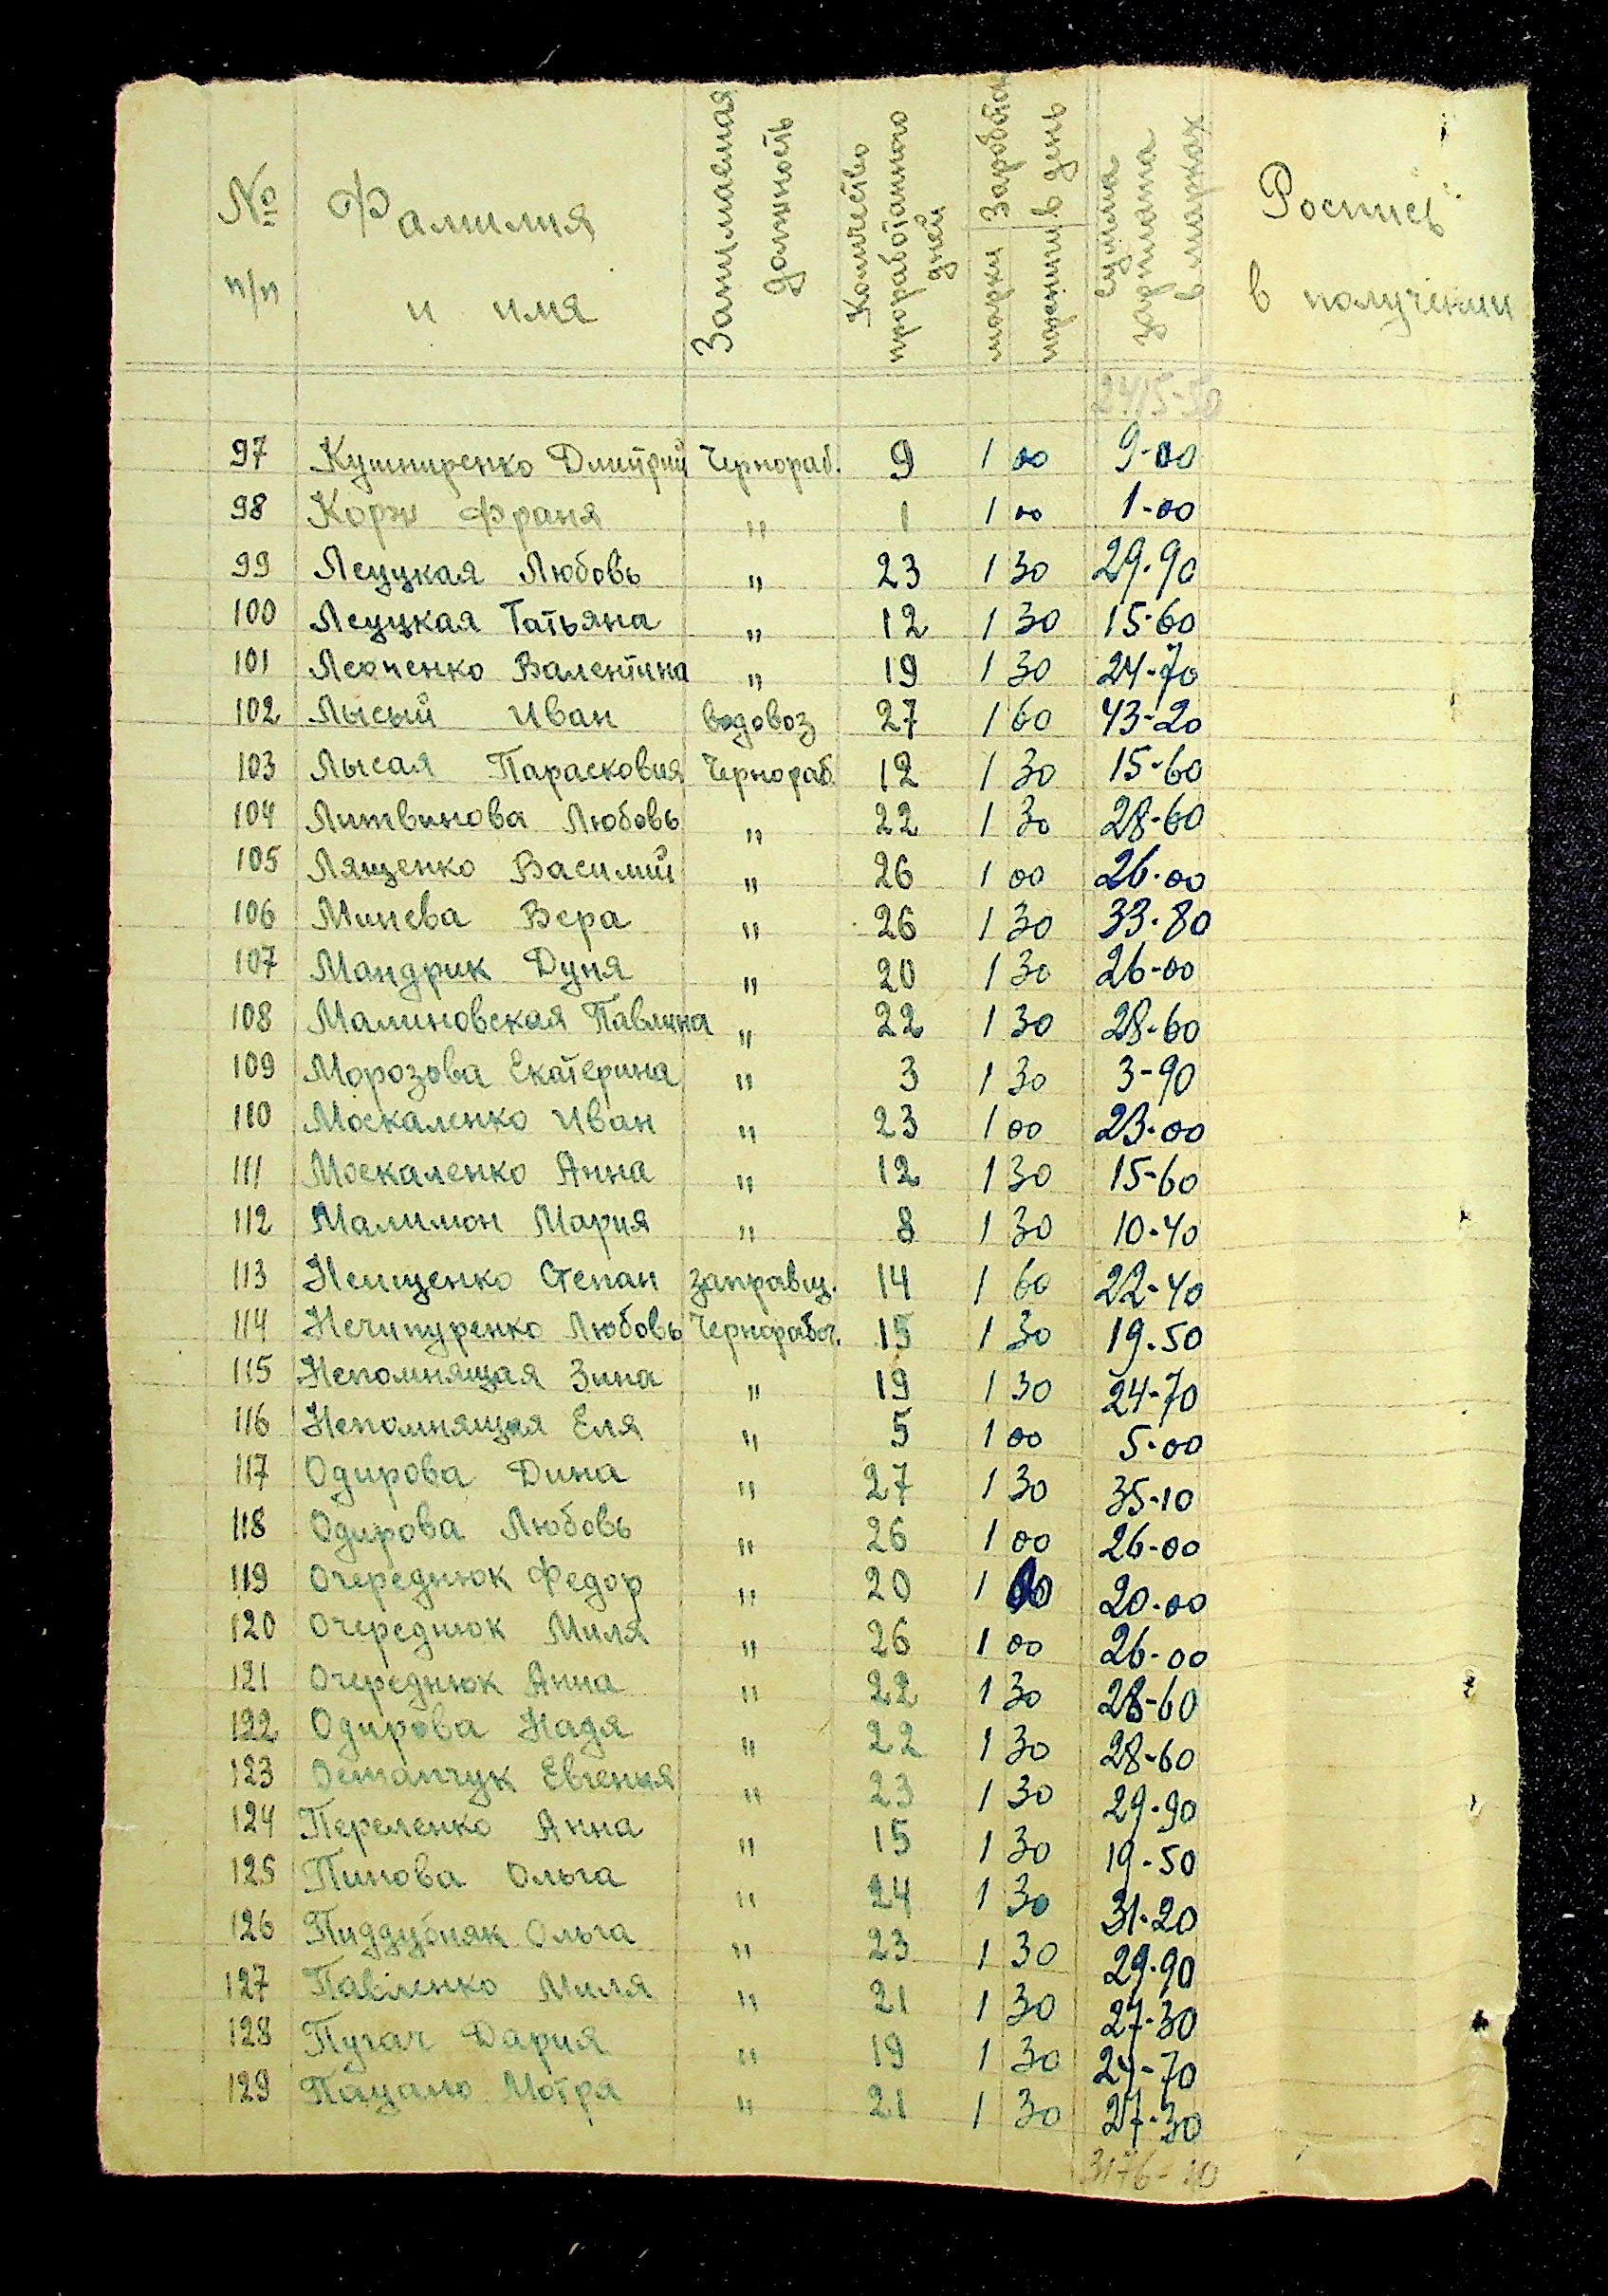 № п/п Фамилия и имя Занимаемая должность Количество проработанного дней Заработок в день марки пфениги Сумма зарплата в марках Роспись в получении
2415-50
97 Кушниренко Дмитрий Чернораб. 9 1 00 9-00
98 Корж Франя " 1 1 00 1-00
99 Лецукая Любовь " 23 1 30 29.90
100 Лецукая Татьяна " 12 1 30 15-60
101 Левченко Валентина " 19 1 30 24-70
102 Лысый Иван водовоз 27 1 60 43-20
103 Лысая Парасковия Чернораб. 12 1 30 15-60
104 Литвинова Любовь " 22 1 30 28-60
105 Лященко Василий " 26 1 00 26.00
106 Минева Вера " 26 1 30 33.80
107 Мандрик Дуня " 20 1 30 26-00
108 Малиновская Павлина " 22 1 30 28-60
109 Морозова Екатерина " 3 1 30 3-90
110 Москаленко Иван " 23 1 00 23-00
111 Москаленко Анна " 12 1 30 15-60
112 Малимон Мария " 8 1 30 10-40
113 Немщенко Степан заправщ. 14 1 60 22-40
114 Нечипуренко Любовь Чернорабоч. 15 1 30 19.50
115 Непомнящая Зина " 19 1 30 24-70
116 Непомнящая Еля " 5 1 00 5-00
117 Одирова Дина " 27 1 30 35-10
118 Одирова Любовь " 26 1 00 26-00
119 Очереднюк Федор " 20 1 00 20-00
120 Очереднюк Миля " 26 1 00 26-00
121 Очереднюк Анна " 22 1 30 28-60
122 Одирова Надя " 22 1 30 28-60
123 Остапчук Евгения " 23 1 30 29-90
124 Переленко Анна " 15 1 30 19-50
125 Пинова Ольга " 24 1 30 31-20
126 Пиддубняк Ольга " 23 1 30 29.90
127 Павленко Миля " 21 1 30 27-30
128 Пугач Дария " 19 1 30 24-70
129 Пацало Мотря " 21 1 30 27-30
3176-10